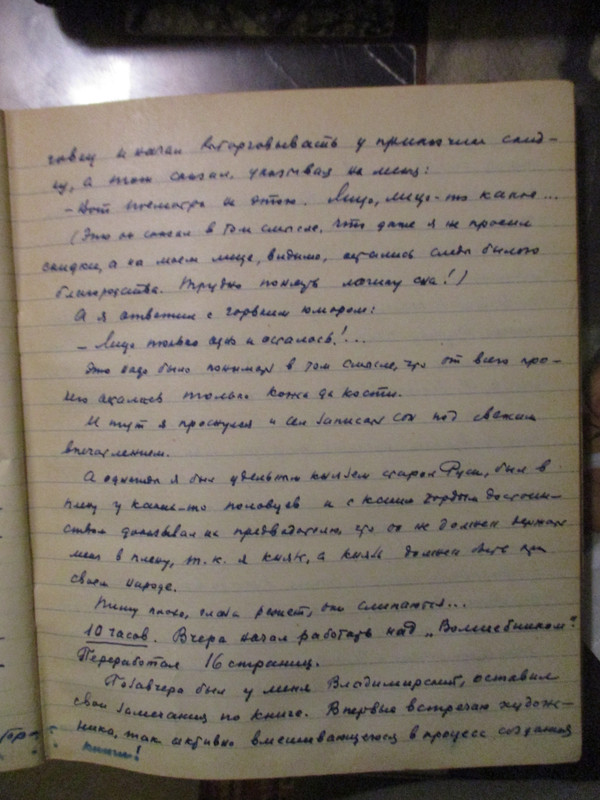 говец и начал выторговывать у приказчика скид-
ку, а тот сказал, указывая на меня:
– Вот посмотри на этого. Лицо, лицо-то какое...
(Это он сказал в том смысле, что даже я не просил
скидки, а на моем лице, видимо, остались следы былого
благородства. Трудно понять логику сна!)
А я ответил с горьким юмором:
– Лицо только одно и осталось!...
Это надо было понимать в том смысле, что от всего про-
чего остались только кожа да кости.
И тут я проснулся и сел записать сон под свежим
впечатлением.
А однажды я был удельным князем старой Руси, был в
плену у каких-то половцев и с каким гордым достоин-
ством доказывал их предводителю, что он не должен держать
меня в плену, т.к. я князь, а князь должен быть при
своем народе.
Пишу плохо, глаза режет, они слипаются...
10 часов. Вчера начал работать над „Волшебником".
Переработал 16 страниц.
Позавчера был у меня Владимирский, оставил
свои замечания по книге. Впервые встречаю худож-
ника, так активно вмешивающегося в процесс создания
книги!